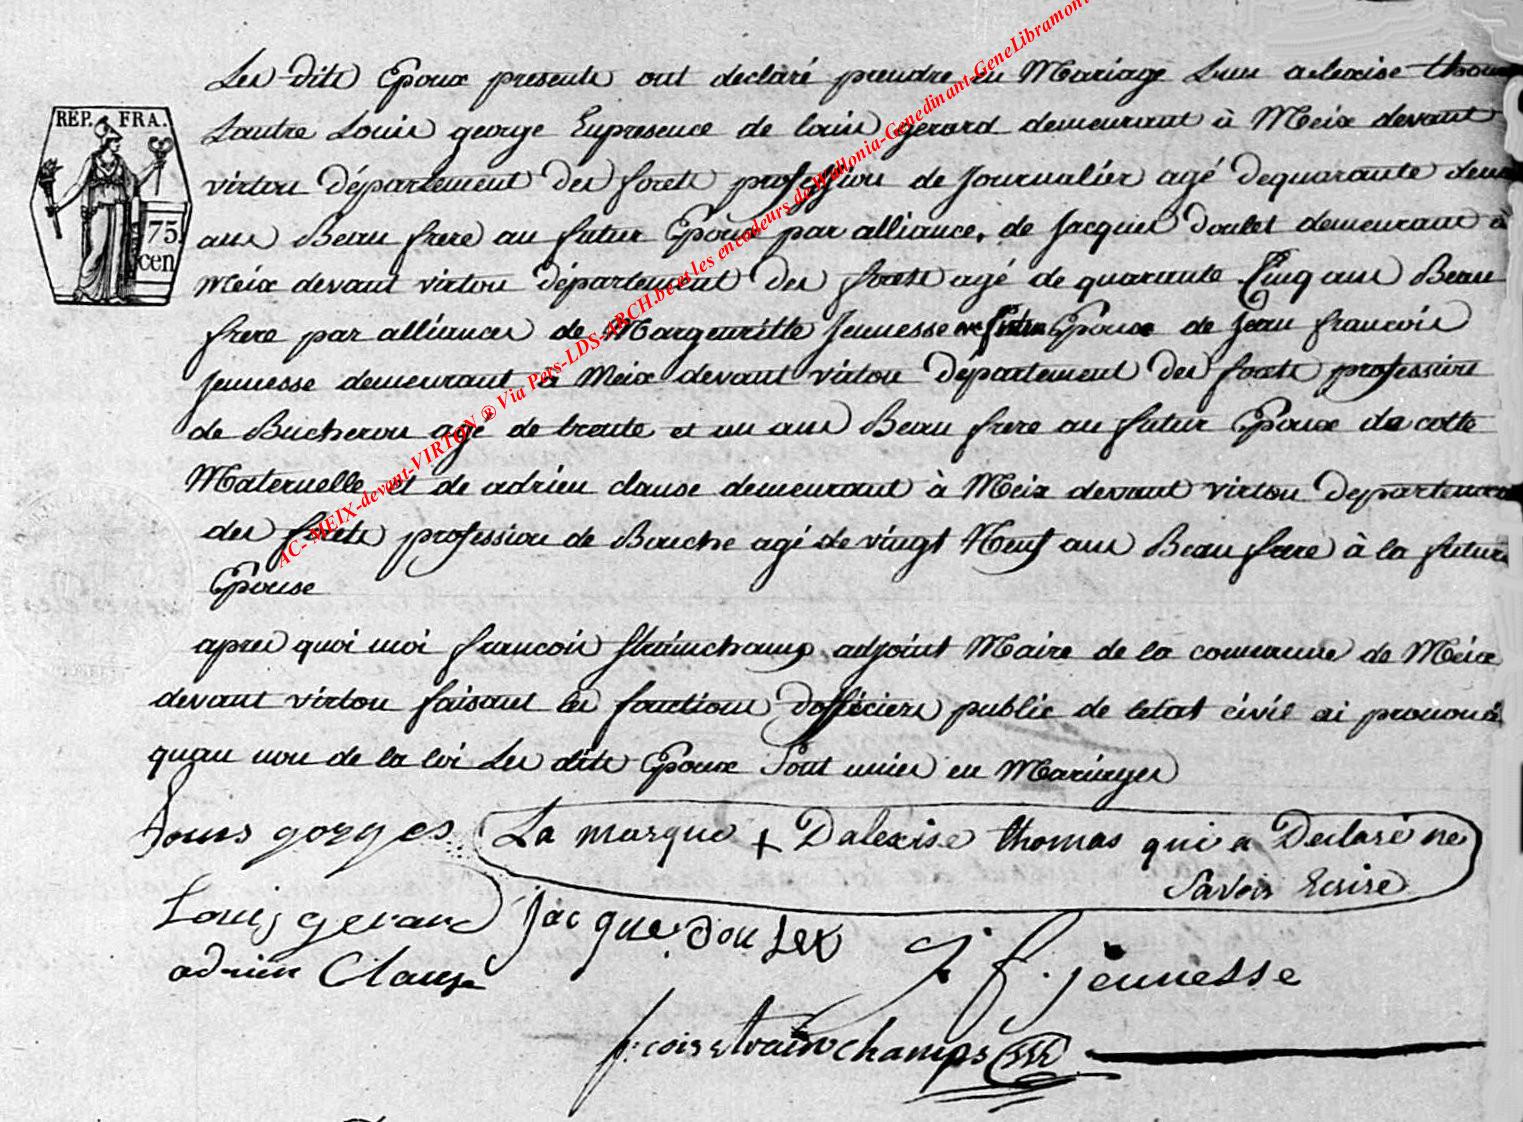 Les dits Epoux presents ont declaré prendre en Mariage Lun alexise thomas
REP. FRA.
Lautre Louis george Enpresence de louis gerard demeurant à Meix devant
virton département des forets profession de Journalier agé dequarante deux
75.
cen
ans Beau frere au futur Epoux par alliance, de Jacques doulet demeurant à
Meix devant virton département des forets agé de quarante Cinq ans Beau
frere par alliances de Margeuritte Jeunesse Epouse de Jean francois
Jeunesse demeurant à Meix devant virton département des forets profession
de Bucheron agé de trente et un ans Beau frere au futur Epoux de cotte
Maternelle et de adrien clause demeurant à Meix devant virton departement
des forets profession de Bouche agé de vingt Neuf ans Beau frere à la future
Epouse
apres quoi moi francois strainchamps adjoint Maire de la commune de Meix
devant virton faisant les fonctions dofficiers public de letat civil ai prononcé
quau non de la loi Les dits Epoux Sont unies en Mariages
Louis gorges La marque + Dalexise thomas qui a Declaré ne
Savoir Ecrire
Louis gerard Jacque doulex J. f. jeunesse
adrien Clause
f. cois strainchamps
AC- MEIX-devant-VIRTON ® Via Pers-LDS-ARCH.be et les encodeurs de Wallonia-Genedinant-GeneLibramont